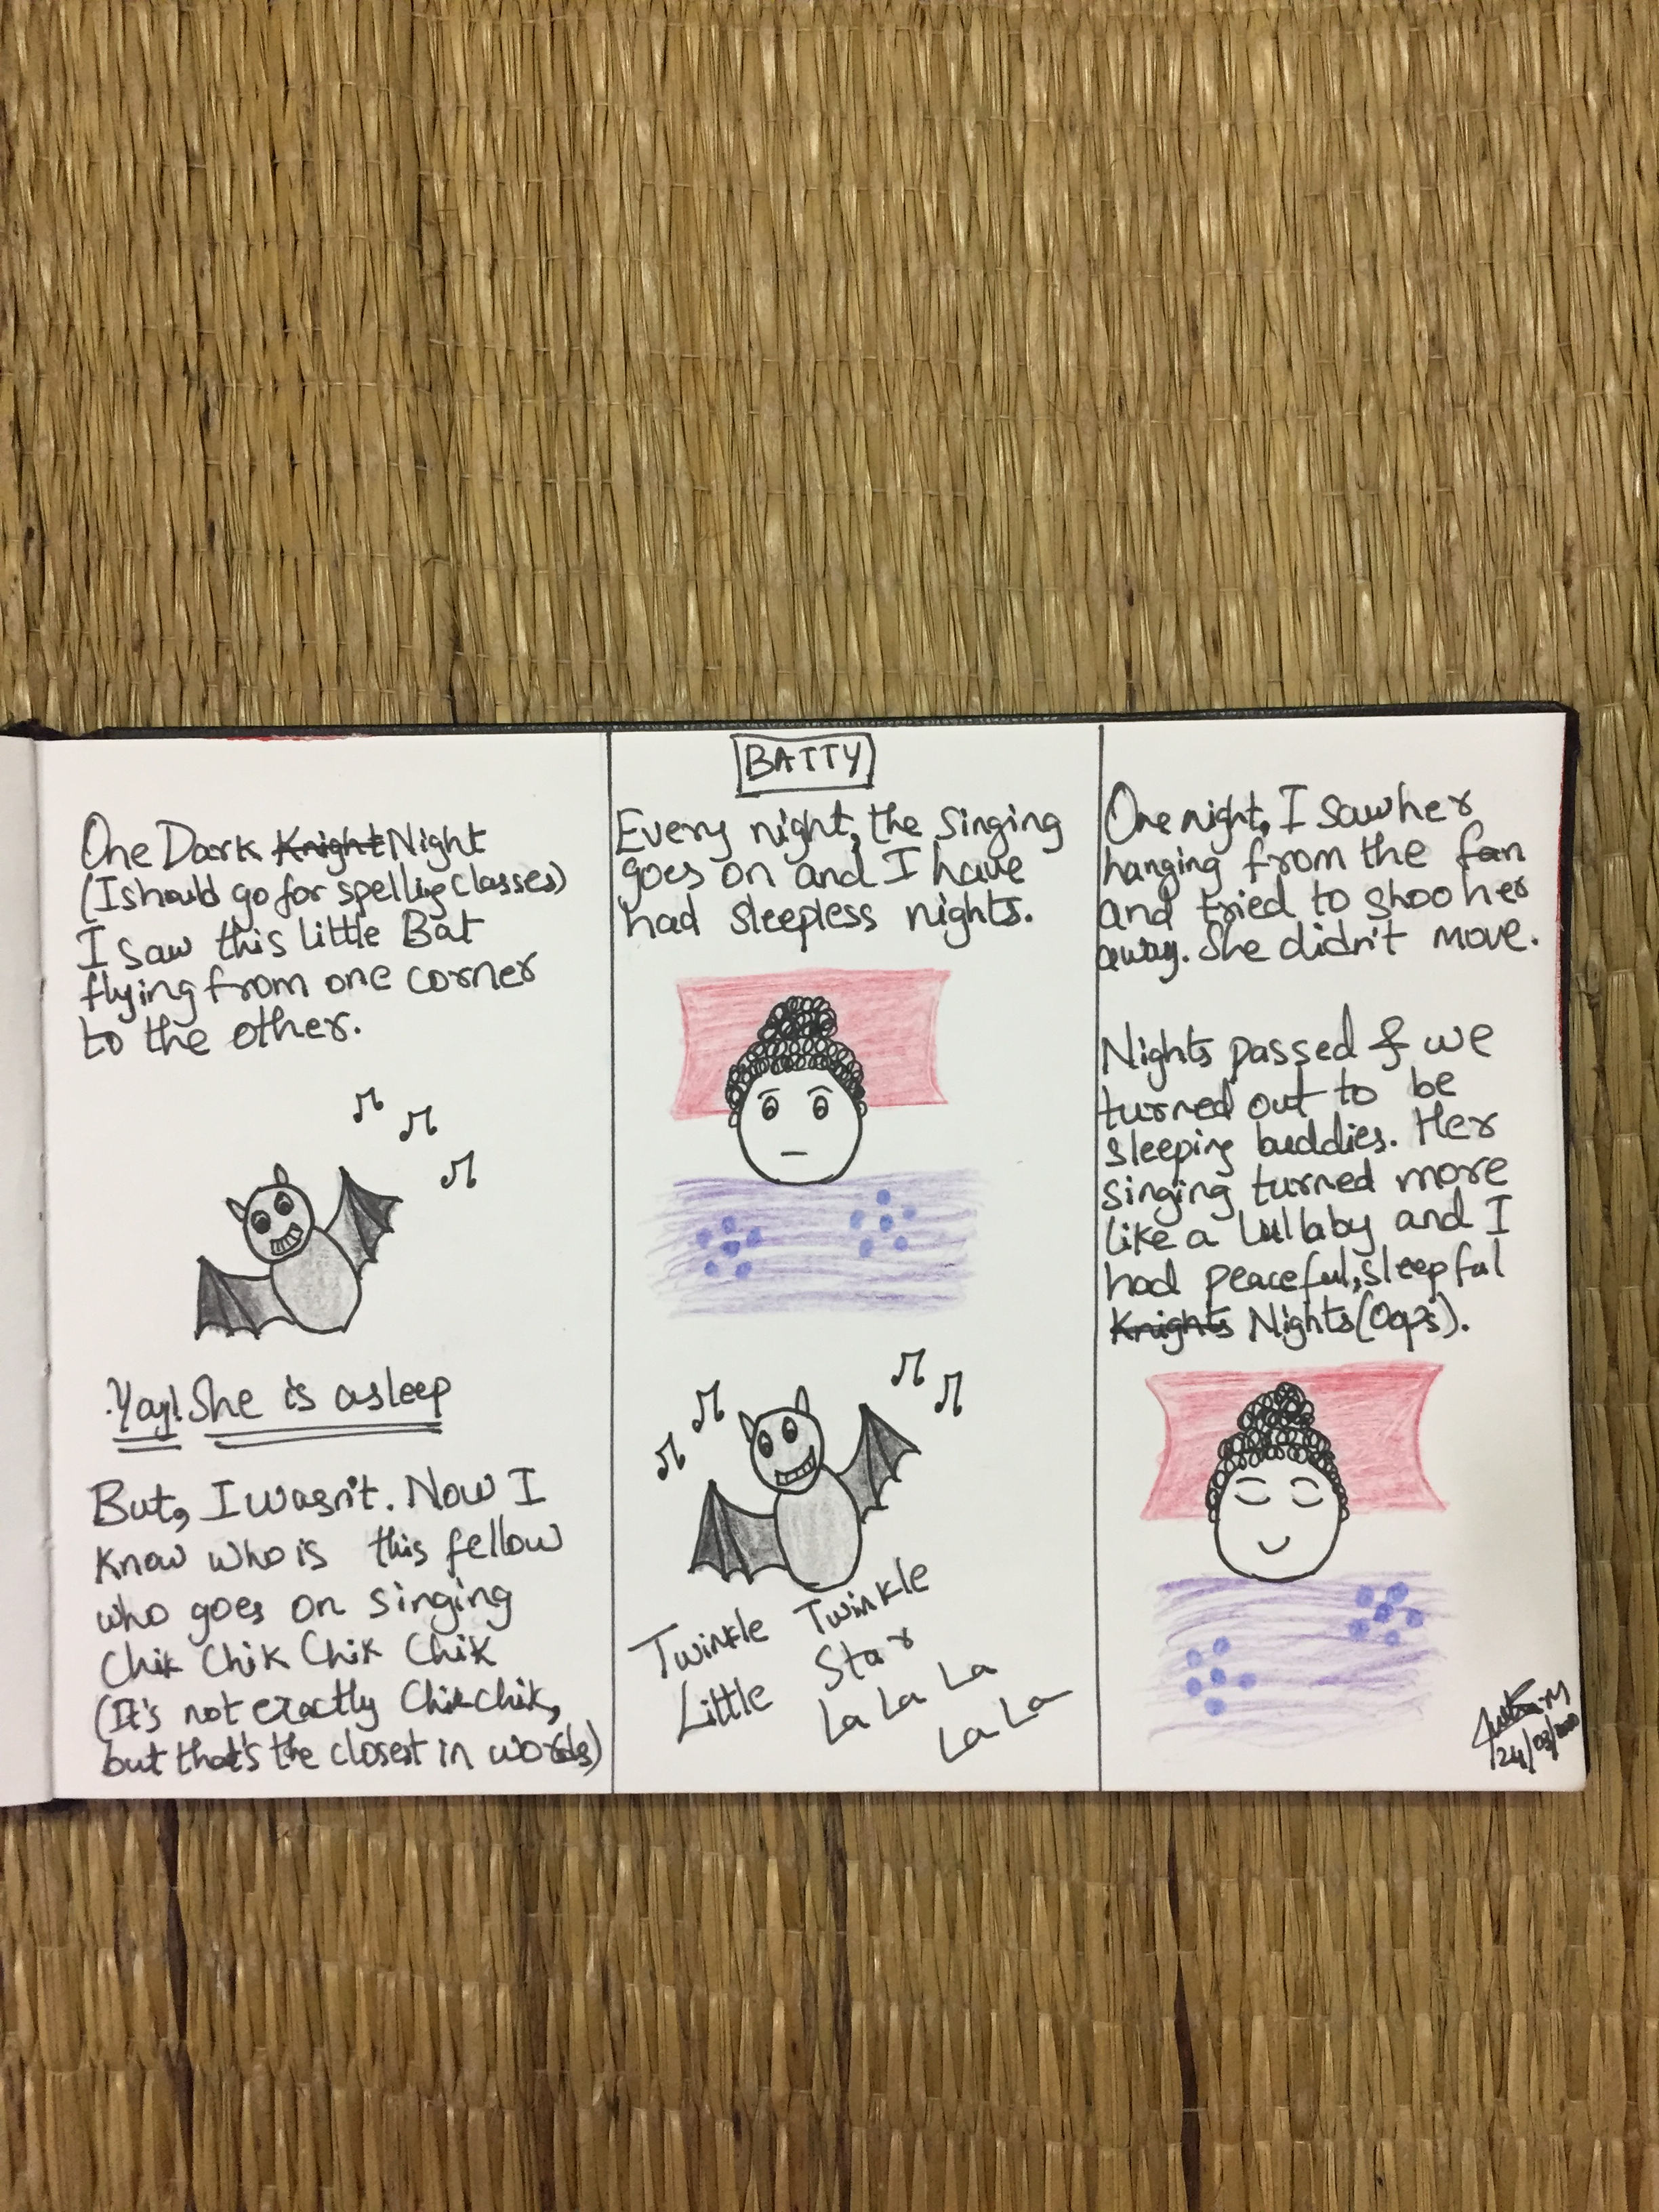 BATTY
One Dark Knight Night
(I should go for spelling classes)
I saw this little Bat
flying from one corner
to the other.
Yay! She is asleep
But, I wasn't. Now I
know who is this fellow
who goes on singing
Chik Chik Chik Chik
(It's not exactly Chik chik,
but that's the closest in words)
Every night, the singing
goes on and I have
had sleepless nights.
Twinkle Twinkle
Little Star
La La La
La La
One night, I saw her
hanging from the fan
and tried to shoo her
away. She didn't move.
Nights passed & we
turned out to be
sleeping buddies. Her
singing turned more
like a lullaby and I
had peaceful, sleepful
Knights Nights (Oops).
24/03/2020